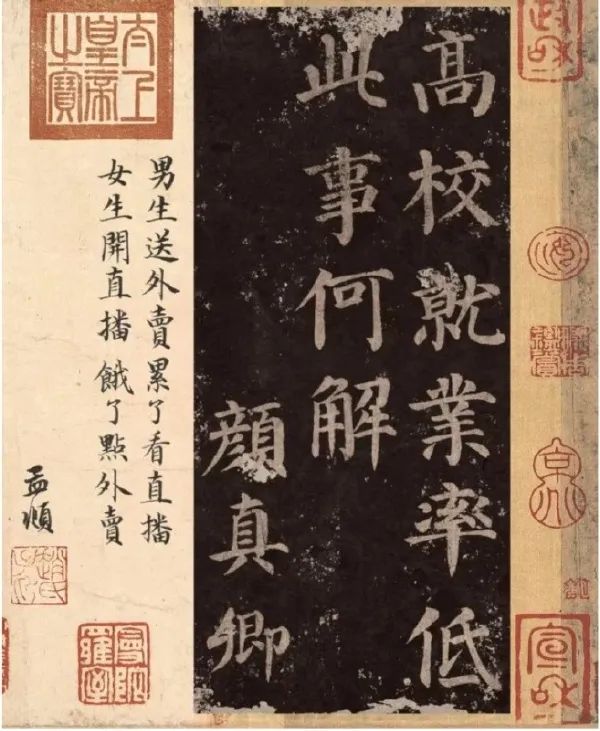 政和
宣和
高校就業率低
此事何解
顔真卿
太上
皇帝
之寶
男生送外賣累了看直播
女生開直播 餓了點外賣
孟頫